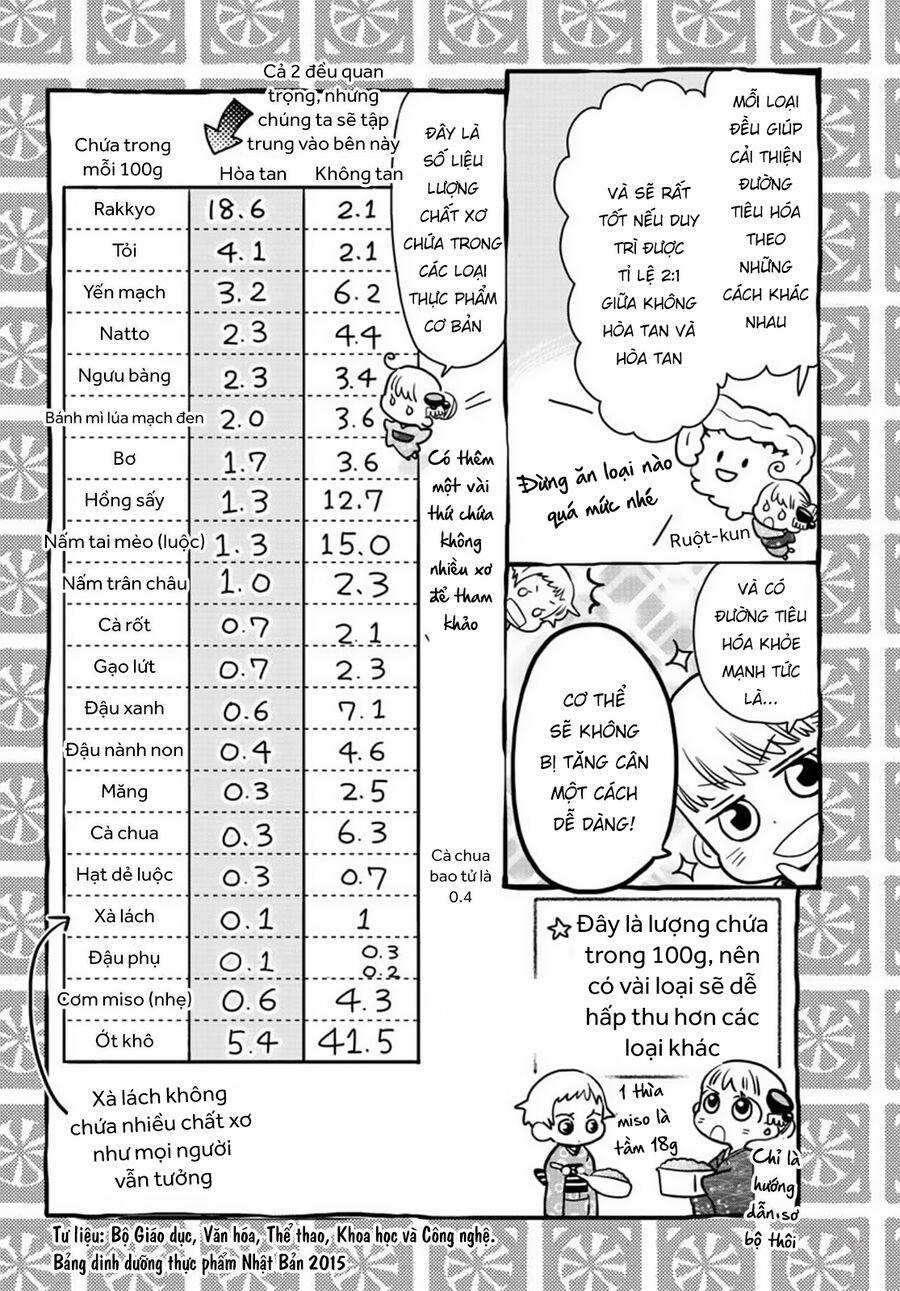 MỖI LOẠI
ĐỀU GIÚP
CẢI THIỆN
ĐƯỜNG
TIÊU HÓA
THEO
NHỮNG
CÁCH KHÁC
NHAU
VÀ SẼ RẤT
TỐT NẾU DUY
TRÌ ĐƯỢC
TỈ LỆ 2:1
GIỮA KHÔNG
HÒA TAN VÀ
HÒA TAN
Đừng ăn loại nào
quá mức nhé
Ruột-kun
VÀ CÓ
ĐƯỜNG TIÊU
HÓA KHỎE
MẠNH TỨC
LÀ...
CƠ THỂ
SẼ KHÔNG
BỊ TĂNG CÂN
MỘT CÁCH
DỄ DÀNG!
ĐÂY LÀ
SỐ LIỆU
LƯỢNG
CHẤT XƠ
CHỨA TRONG
CÁC LOẠI
THỰC PHẨM
CƠ BẢN
Có thêm
một vài
thứ chứa
không
nhiều xơ
để tham
khảo
Cả 2 đều quan
trọng, nhưng
chúng ta sẽ tập
trung vào bên này
Chứa trong
mỗi 100g
Hòa tan Không tan
Rakkyo 18.6 2.1
Tỏi 4.1 2.1
Yến mạch 3.2 6.2
Natto 2.3 4.4
Ngưu bàng 2.3 3.4
Bánh mì lúa mạch đen 2.0 3.6
Bơ 1.7 3.6
Hồng sấy 1.3 12.7
Nấm tai mèo (luộc) 1.3 15.0
Nấm trân châu 1.0 2.3
Cà rốt 0.7 2.1
Gạo lứt 0.7 2.3
Đậu xanh 0.6 7.1
Đậu nành non 0.4 4.6
Măng 0.3 2.5
Cà chua 0.3 6.3
Hạt dẻ luộc 0.3 0.7
Xà lách 0.1 1
Đậu phụ 0.1 0.3
0.2
Cơm miso (nhẹ) 0.6 4.3
Ớt khô 5.4 41.5
Cà chua
bao tử là
0.4
Xà lách không
chứa nhiều chất xơ
như mọi người
vẫn tưởng
☆ Đây là lượng chứa
trong 100g, nên
có vài loại sẽ dễ
hấp thu hơn các
loại khác
1 thìa
miso là
tầm 18g
Chỉ là
hướng
dẫn sơ
bộ thôi
Tư liệu: Bộ Giáo dục, Văn hóa, Thể thao, Khoa học và Công nghệ.
Bảng dinh dưỡng thực phẩm Nhật Bản 2015